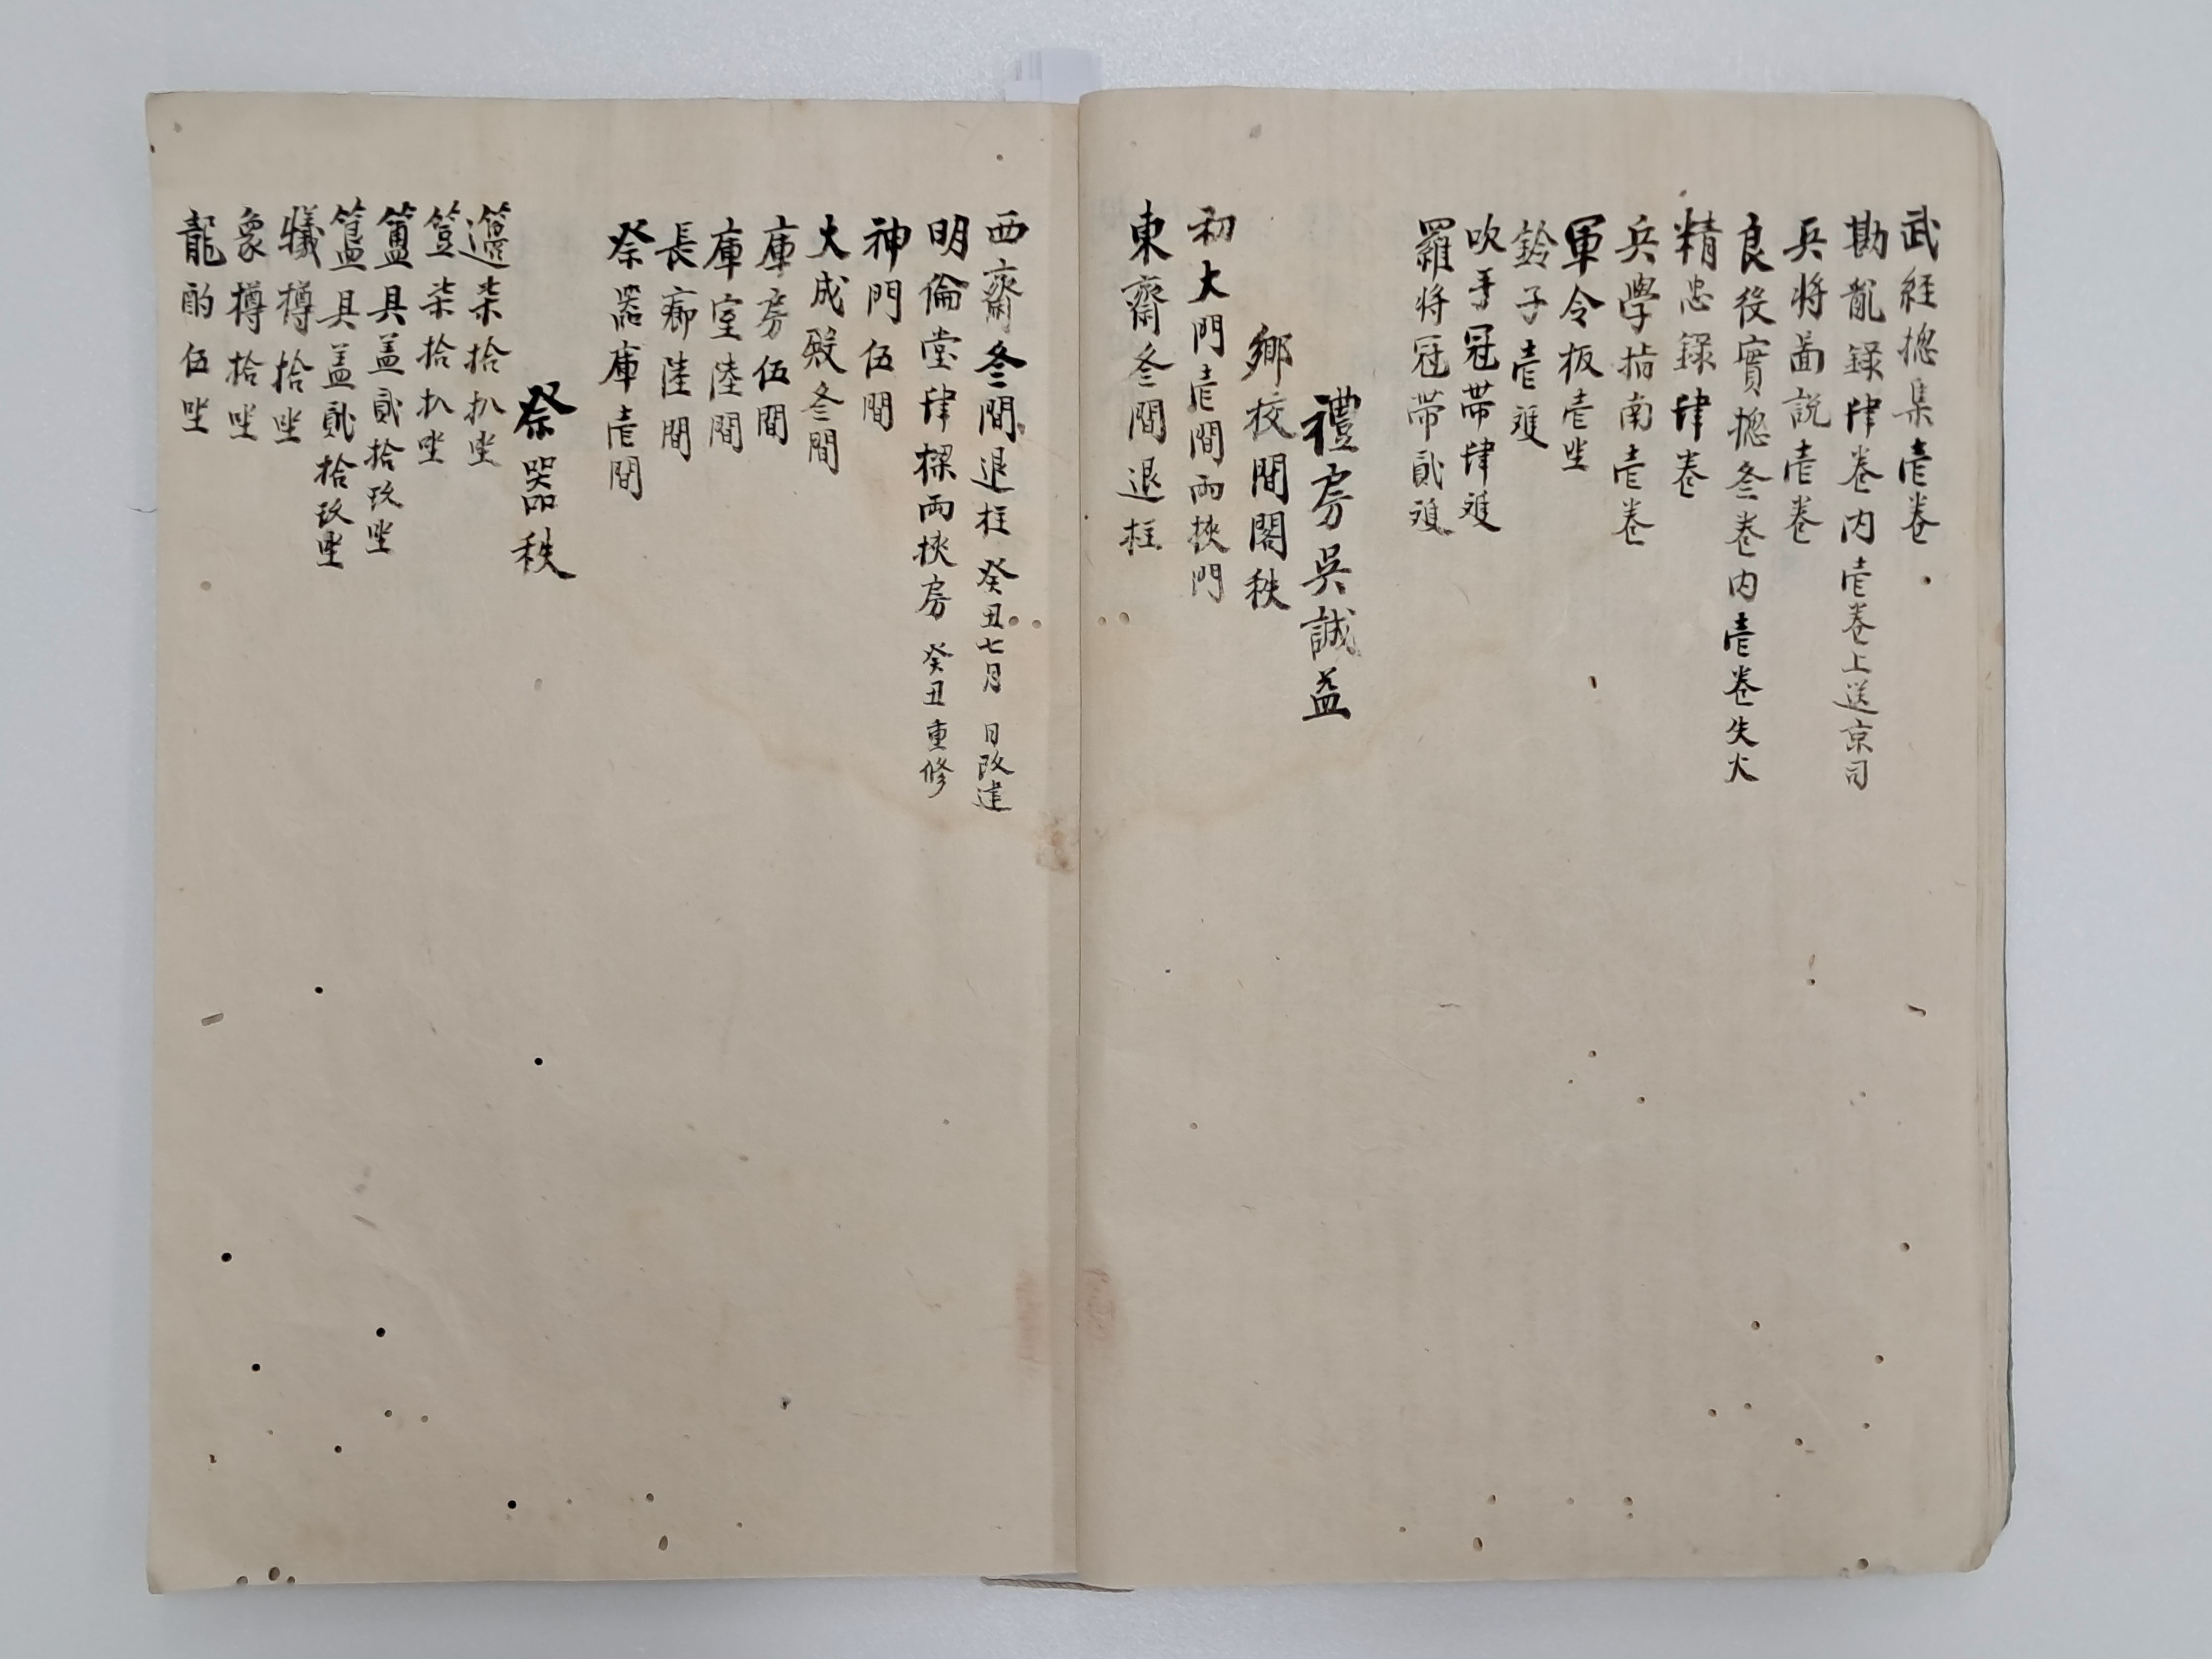 武経揔集壱卷
勘乱録肆卷内壱卷上送京司
兵将啚説壱卷
良役實揔叁卷内壱卷失火
精忠録肆卷
兵學指南壱卷
軍令板壱坐
鈴子壱䨥
吹手冠帶肆䨥
羅将冠帶貳䨥
禮房吳誠益
鄉校間閣秩
初大門壱間兩挾門
東齋叁間退柱
西齋叁間退柱 癸丑七月 日改建
明倫堂肆樑兩挾房 癸丑重修
神門伍間
大成殿叁間
庫房伍間
庫室陸間
長廊陸間
祭器庫壱間
祭器秩
籩柒拾扒坐
䇺柒拾扒坐
簠具盖貳拾玖坐
簋具盖貳拾玖坐
犧樽拾坐
象樽拾坐
龍酌伍坐